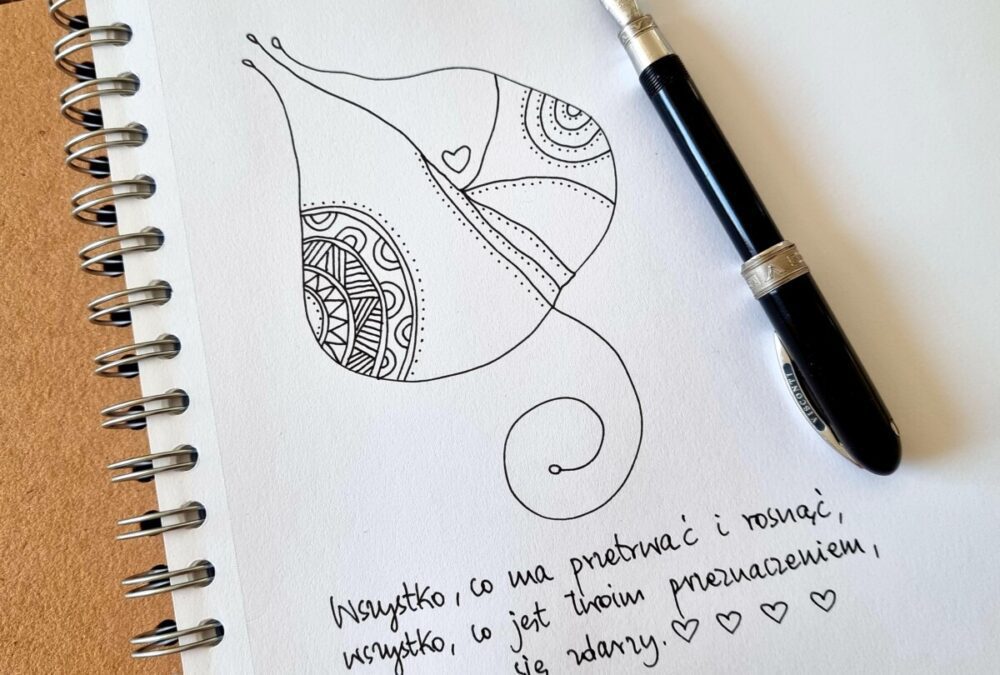 Wszystko, co ma przetrwać i rosnąć,
wszystko, co jest Twoim przeznaczeniem,
się zdarzy. ♡ ♡ ♡ ♡
VISCONTI